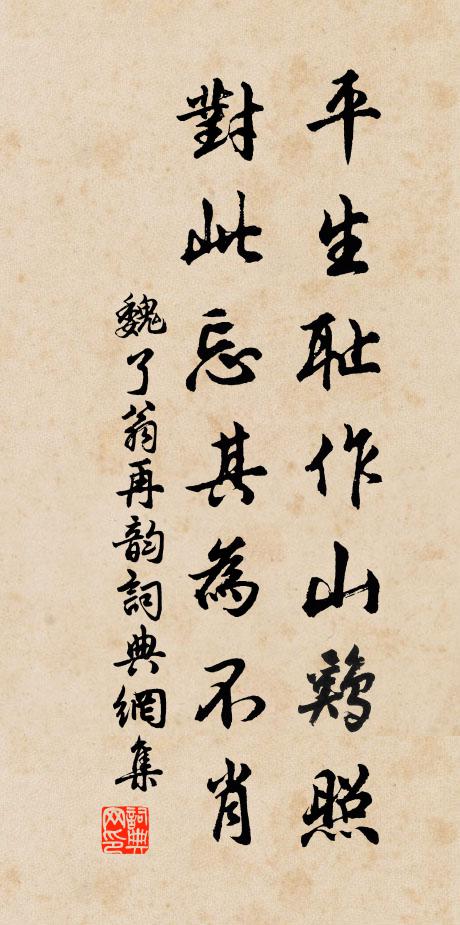 平生耻作山鷄照
對此忘其為不肖
魏了翁再韵詞典網集
詞典網印